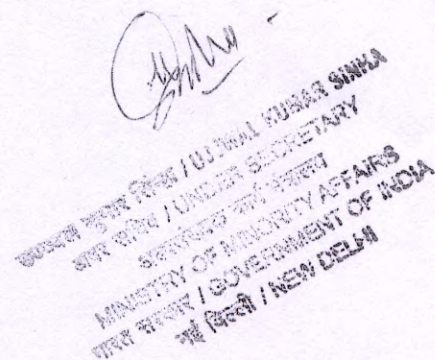 उज्जवल कुमार सिंका / UJJWAL KUMAR SINKA
अवर सचिव / UNDER SECRETARY
अल्पसंख्यक कार्य मंत्रालय
MINISTRY OF MINORITY AFFAIRS
भारत सरकार / GOVERNMENT OF INDIA
नई दिल्ली / NEW DELHI